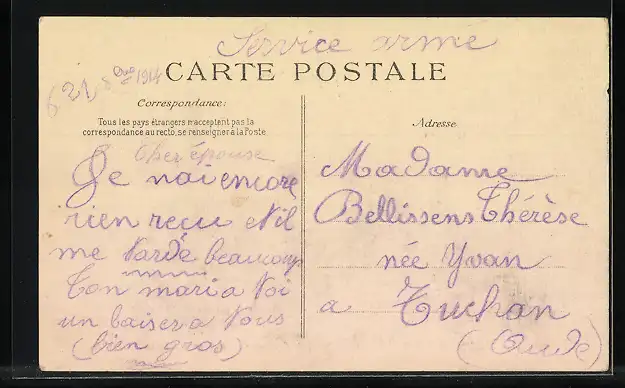 Service armé
8 Oue 1914
621
CARTE POSTALE
Correspondance:
Tous les pays étrangers n'acceptent pas la
correspondance au recto, se renseigner à la Poste
Cher épouse
Je nai encore
rien recu et il
me tarde beaucoup
Ton mari a toi
un baiser a tous
(bien gros)
Adresse
Madame
Bellissens Thérèse
née Yvan
a Tuchan
(Aude)